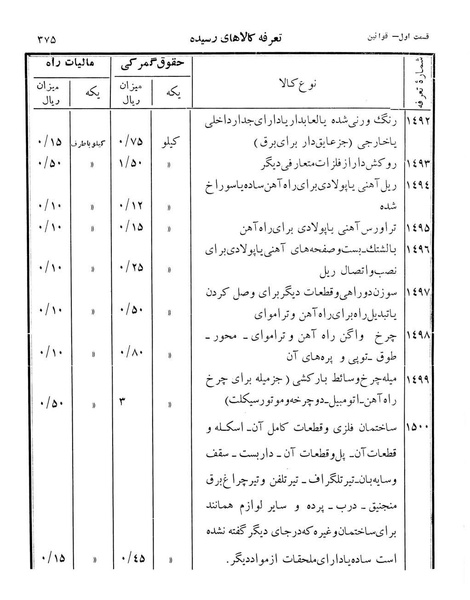 قسمت اول – قوانین تعرفه کالاهای رسیده ۳۷۵
شمارهٔ تعرفه نوع کالا حقوق گمرکی مالیات راه
یکه میزان ریال یکه میزان ریال
۱۴۹۲ رنگ ورنی شده یا لعابدار یا دارای جدار داخلی
یا خارجی (جز عایق دار برای برق) کیلو ۰/۷۵ کیلو با ظرف ۰/۱۵
۱۴۹۳ روکش دار از فلزات متعارفی دیگر » ۱/۵۰ » ۰/۵۰
۱۴۹۴ ریل آهنی یا پولادی برای راه آهن ساده یا سوراخ
شده » ۰/۱۲ » ۰/۱۰
۱۴۹۵ تراورس آهنی یا پولادی برای راه آهن » ۰/۱۵ » ۰/۱۰
۱۴۹۶ بالشتك ـ بست و صفحه های آهنی یا پولادی برای
نصب و اتصال ریل » ۰/۲۵ » ۰/۱۰
۱۴۹۷ سوزن دوراهی و قطعات دیگر برای وصل کردن
یا تبدیل راه برای راه آهن و تراموای » ۰/۵۰ » ۰/۱۰
۱۴۹۸ چرخ واگن راه آهن و تراموای - محور -
طوق ـ توپی و پره های آن » ۰/۸۰ » ۰/۱۰
۱۴۹۹ میله چرخ وسائط بارکشی (جز میله برای چرخ
راه آهن ـ اتومبیل ـ دوچرخه و موتور سیکلت) » ۳ » ۰/۵۰
۱۵۰۰ ساختمان فلزی و قطعات کامل آن ـ اسکله و
قطعات آن ـ پل و قطعات آن - داربست - سقف
و سایه بان ـ تیر تلگراف ـ تیر تلفن و تیر چراغ برق
منجنیق - درب - پرده و سایر لوازم همانند
برای ساختمان و غیره که در جای دیگر گفته نشده
است ساده یا دارای ملحقات از مواد دیگر. » ۰/۴۵ » ۰/۱۵